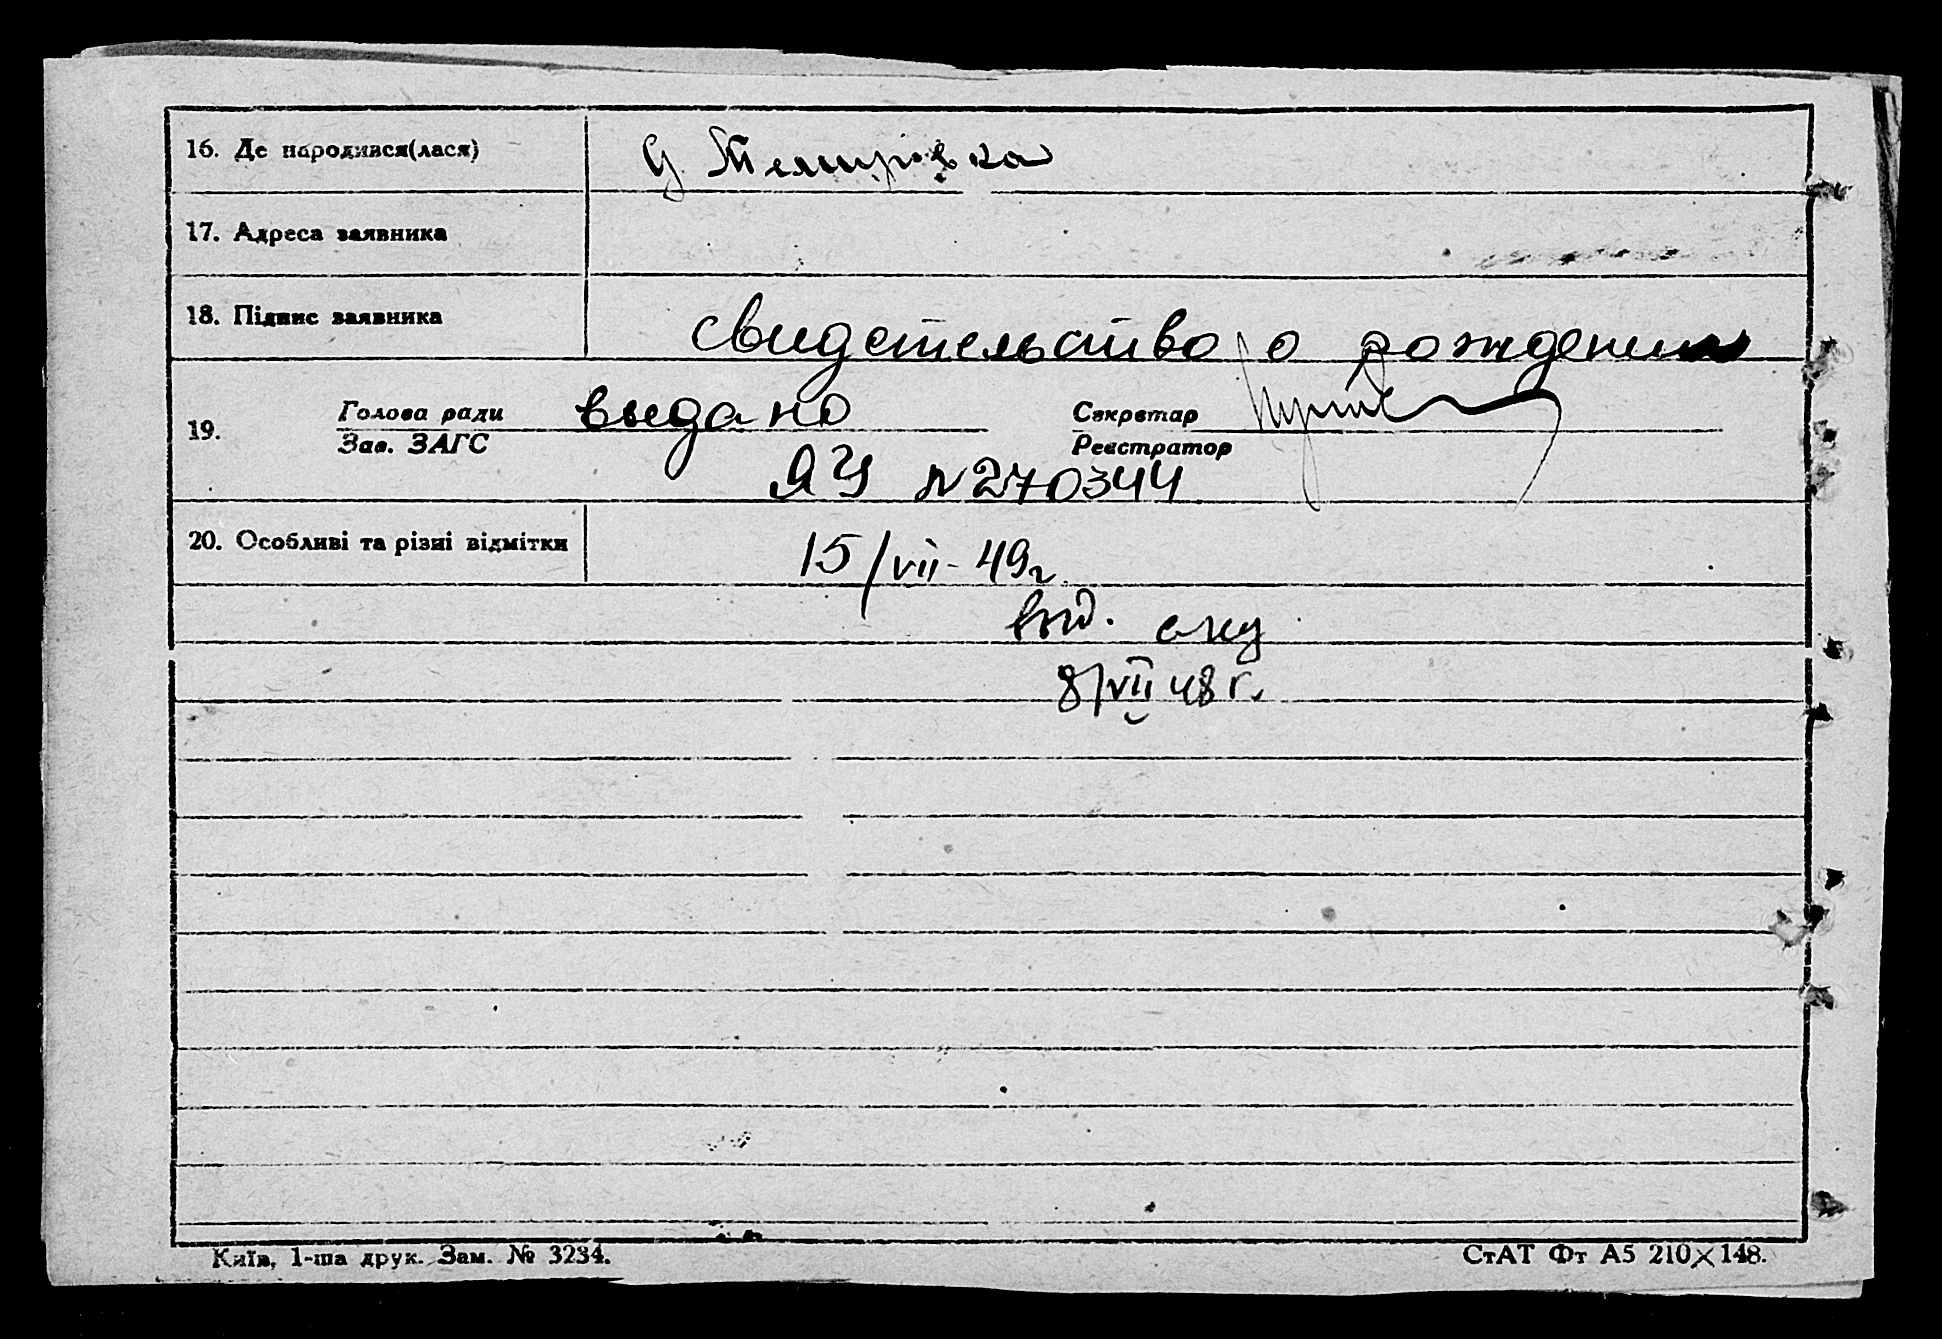 16. Де народився(лася) с Темировка
17. Адреса заявника
18. Підпис заявника свидетельство о рождении
19. Голова ради выдано Секретар
Зав. ЗАГС Реєстратор
ЯЧ №270344
20. Особливі та різні відмітки 15/VII-49г
8/VII 48 г.
Київ, 1-ша друк. Зам. № 3234. СтАТ Фт А5 210×148.